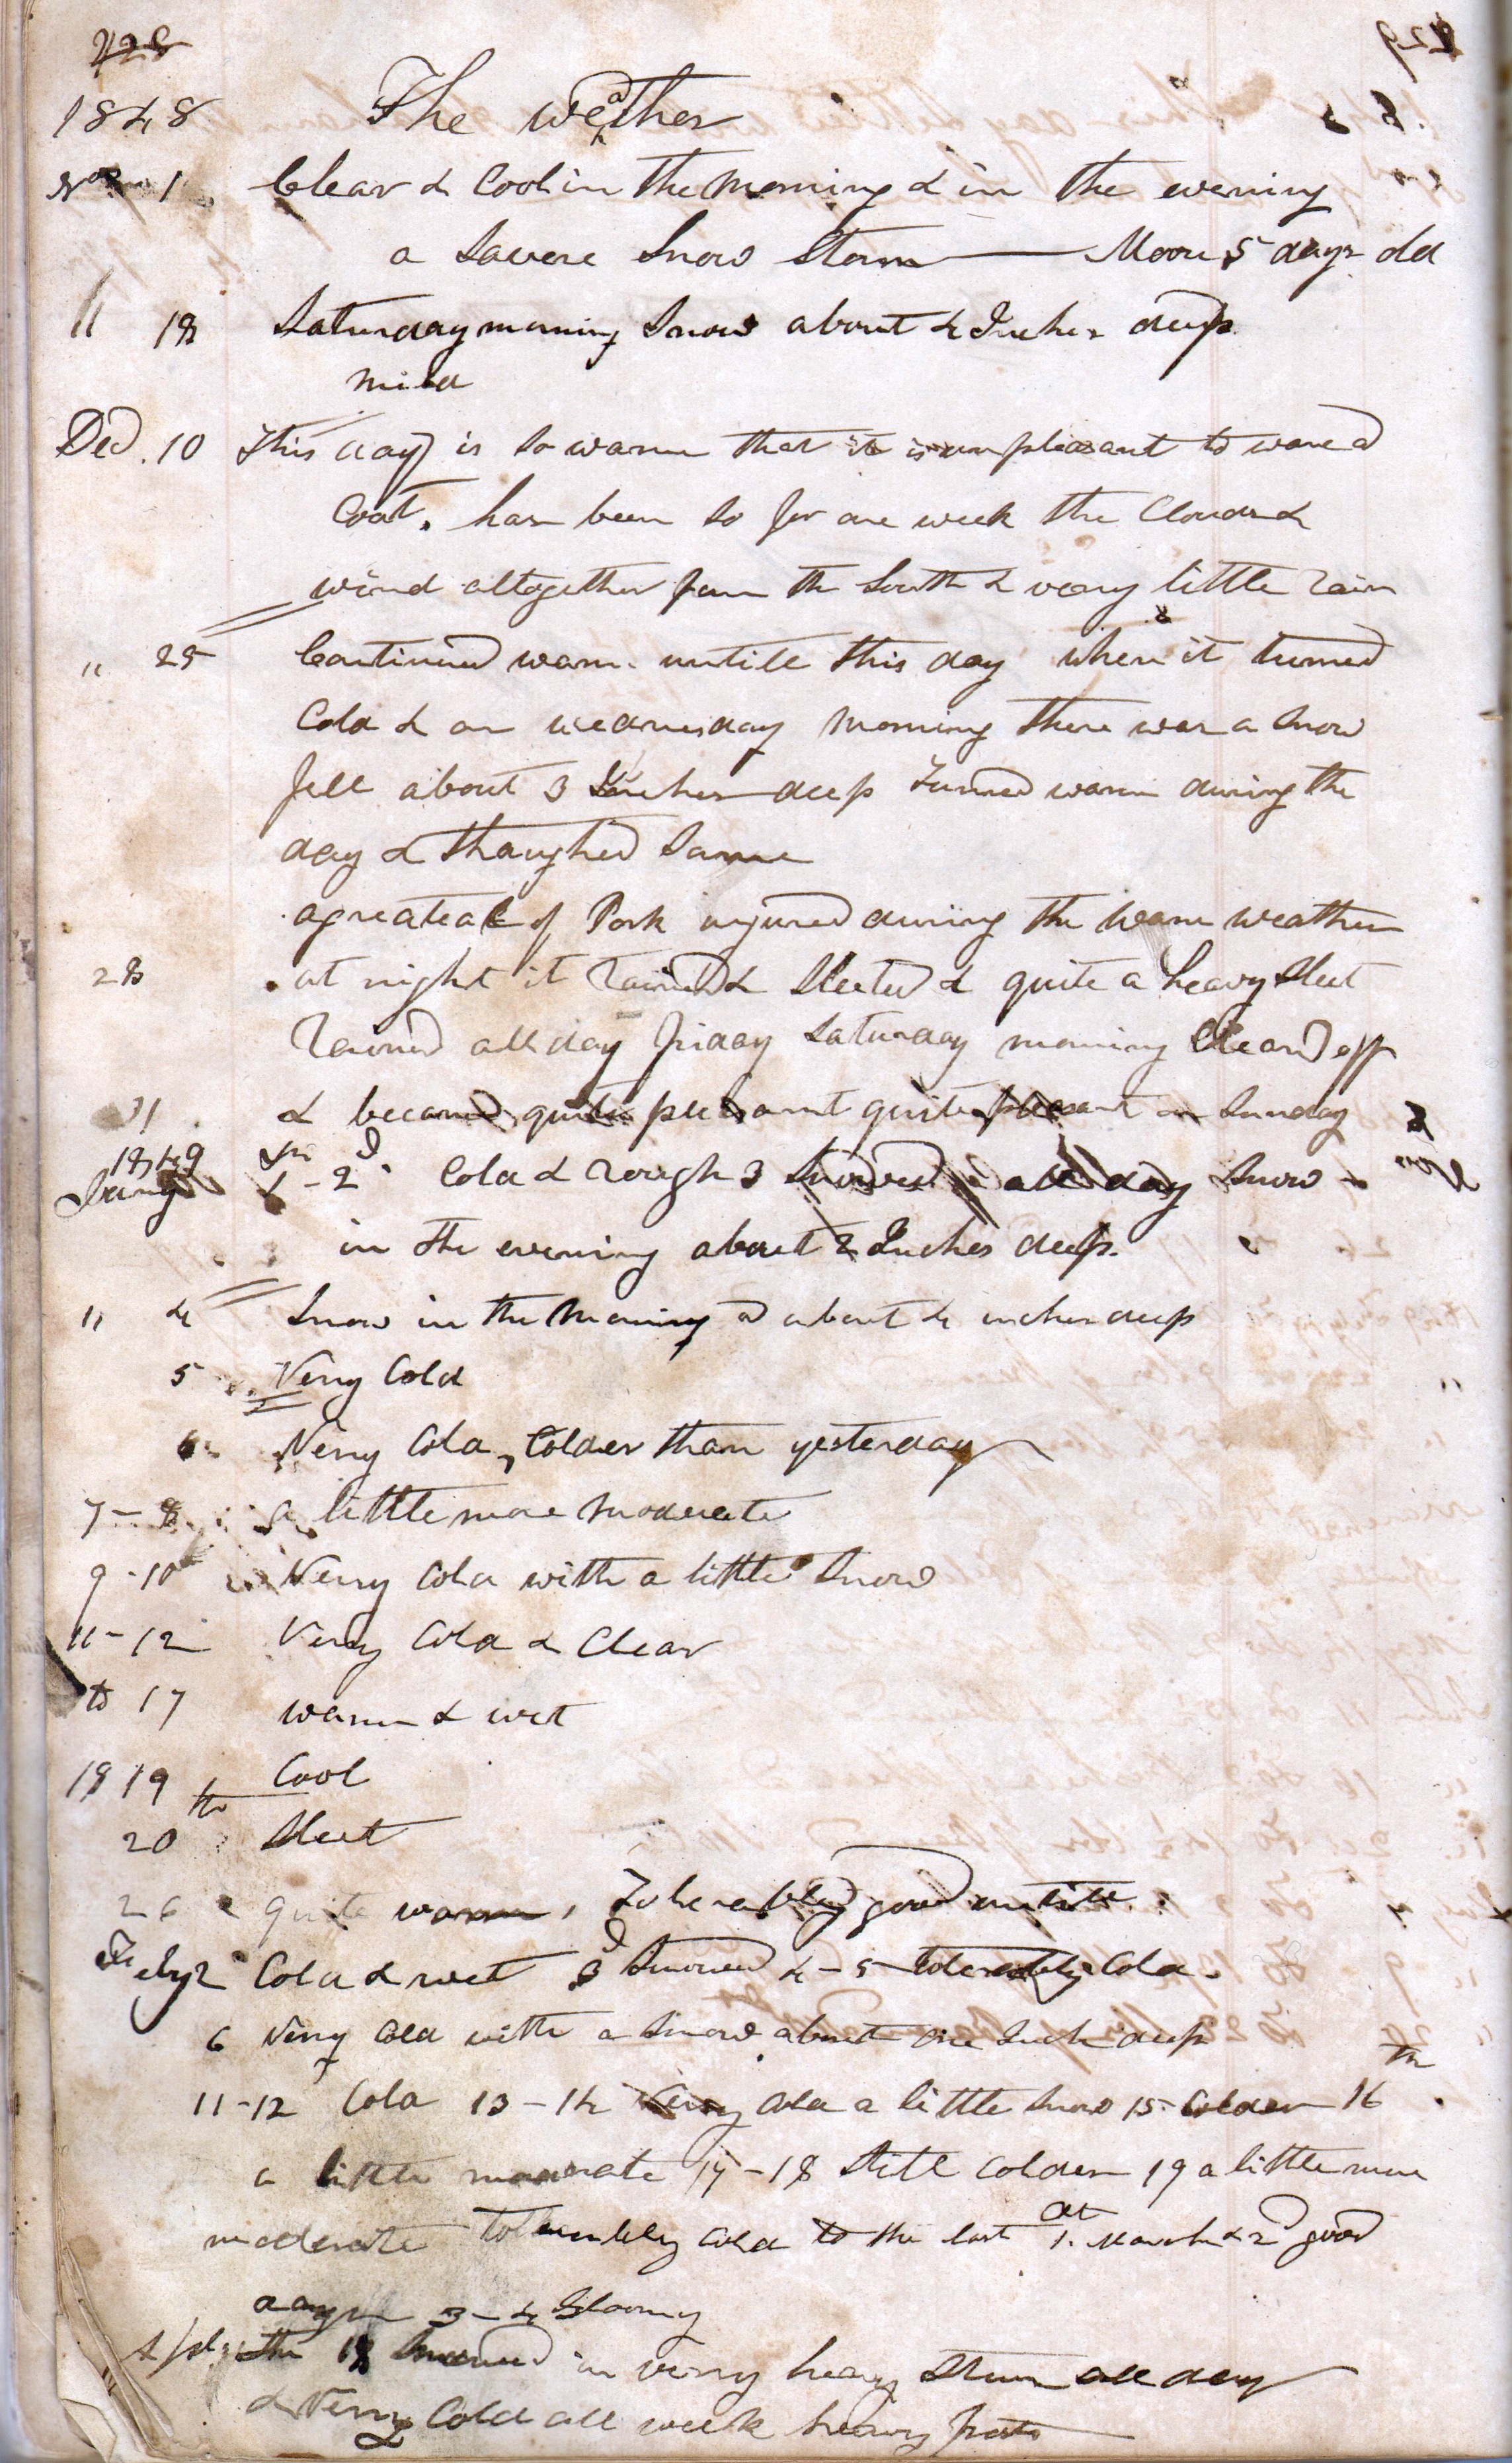 428
1848 The weather
Nov 1 Clear & Cool in the Morning & in the evening
a Savere Snow Storm — Moon 5 days old
" 18 Saturday morning Snow about 4 Inches deep
mild
Dec. 10 This day is so warm that it is unpleasant to ware a
Coat. has been so for one week the Clouds &
wind altogether from the South & verry little rain
" 25 Continued warm untill this day when it turned
Cold & on wednesday Morning there was a Snow
fell about 3 Inches deep Turned warm during the
day & thaughed Some
a greateal of Pork injured during the warm weather
28 at night it rained & Sleeted & quite a heavy Sleet
Rained all day friday Saturday morning Cleard off
31 & became quite pleasant quite pleasant on Sunday
1849
Jany 1 - 2d Cold & rough 3 Snowed all day Snow
in the evening about 2 Inches deep.
" 4 Snow in the Morning about 4 inches deep
5 Verry Cold
6 Verry Cold, Colder than yesterday
7 - 8 a little more moderate
9 - 10 Verry Cold with a little Snow
11 - 12 Verry Cold & Clear
to 17 warm & wet
18 19 Cool
20th Sleet
26 quite warm, Tolerably good untill
Feby 2 Cold & wet 3d Snowed 4 - 5 tolerably Cold.
6 Verry Cold with a Snow about one Inch deep
11 - 12 Cold 13 - 14 Verry Cold a little Snow 15 Colder 16th
a little moderate 17 - 18 Still Colder 19 a little more
moderate tolerably Cold to the last 1st March & 2d good
days 3 - 4 Gloomy
Apl. the 18 Snowed in verry heavy Storm all day
& Verry Cold all week heavy frosts